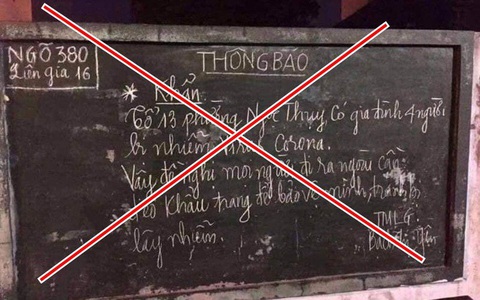 NGÕ 380
Liên gia 16
THÔNG BÁO
* Khẩn
Tổ 13 phường Ngọc Thụy có gia đình 4 người
bị nhiễm Virut Corona.
Vậy đề nghị mọi người đi ra ngoài cần
đeo Khẩu trang để bảo vệ mình, tránh bị
lây nhiễm.
TMLG